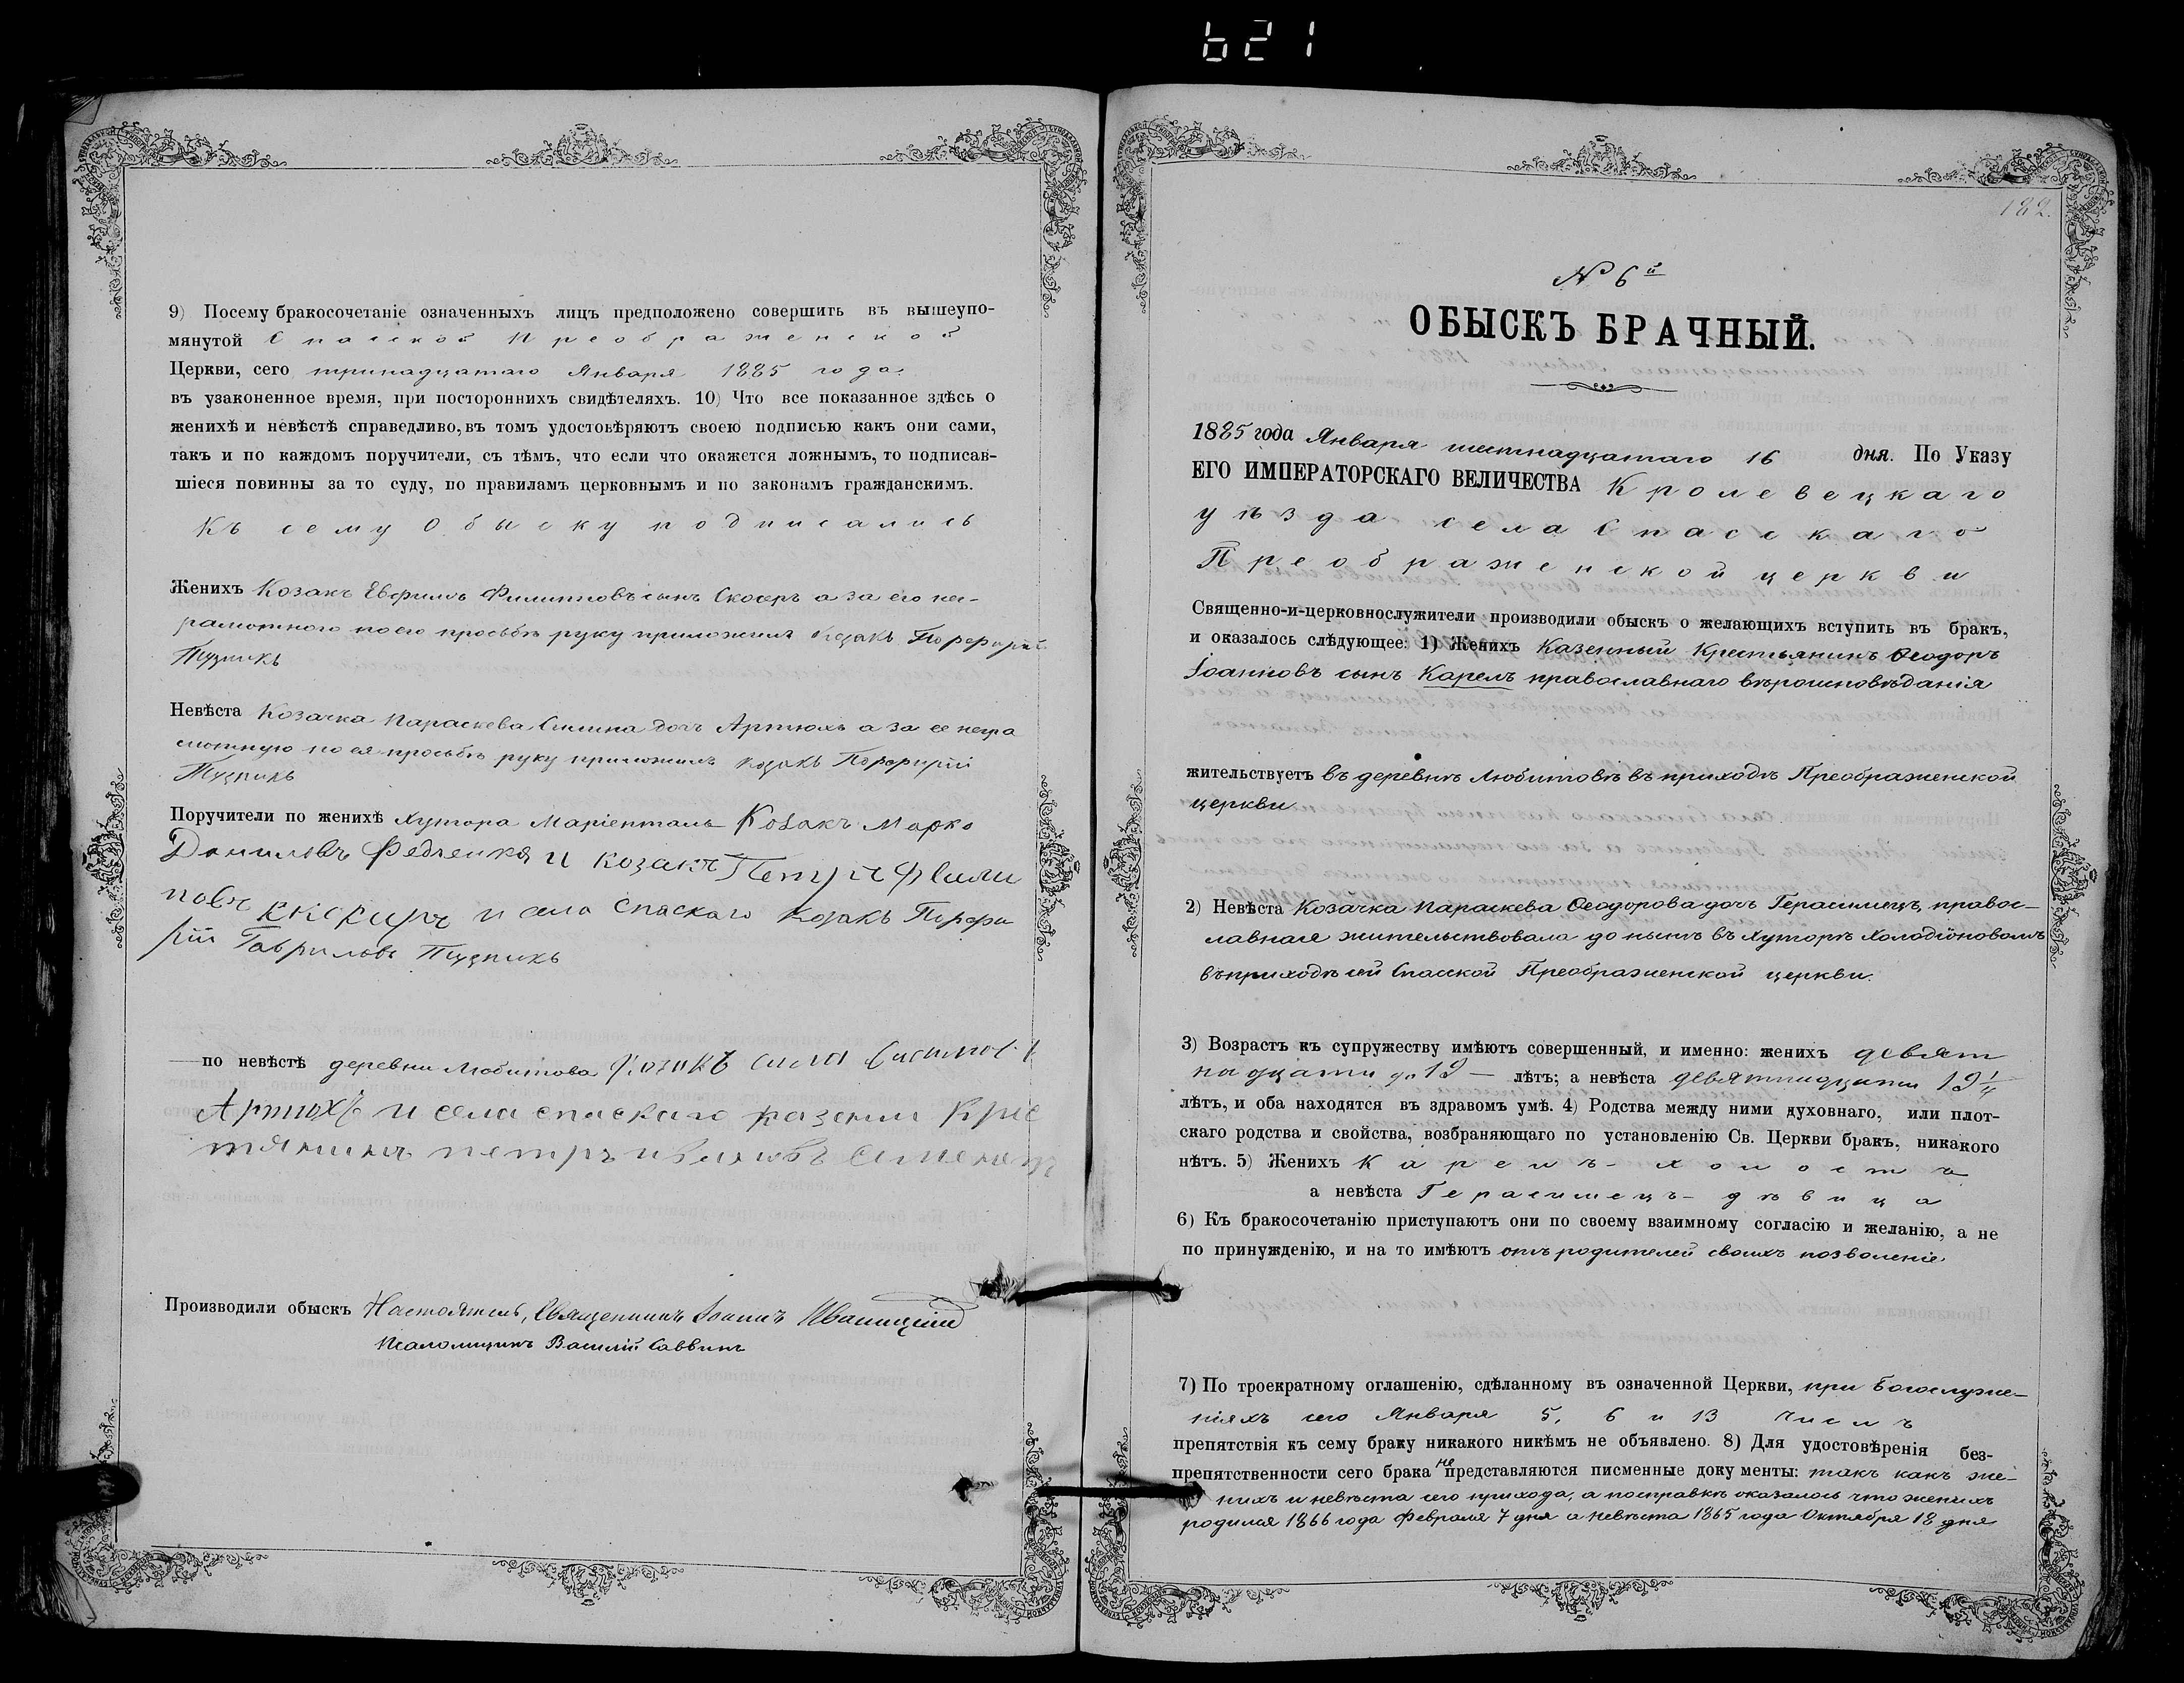 621
9) Посему бракосочетаніе означенныхъ лицъ предположено совершить въ вышеупо-
мянутой Спасской Преображенской
Церкви, сего тринадцатаго Января 1885 года.
въ узаконенное время, при постороннихъ свидѣтеляхъ. 10) Что все показанное здѣсь о
женихѣ и невѣстѣ справедливо, въ томъ удостовѣряютъ своею подписью какъ они сами,
такъ и по каждомъ поручители, съ тѣмъ, что если что окажется ложнымъ, то подписав-
шіеся повинны за то суду, по правиламъ церковнымъ и по законамъ гражданскимъ.
Къ сему Обыску подписались
Женихъ Козакъ Евфимъ Филипповъ сынъ Скосеръ а за его нег-
рамотного по его просьбѣ руку приложилъ козакъ Порфирій
Пузикъ
Невѣста Козачка Параскева Силина доч Артюхъ а за ее негра
мотную по ея просьбѣ руку приложилъ козакъ Порфирій
Пузикъ
Поручители по женихѣ хутора Маріенталь Козакъ Марко
Даниловъ Федченко и козакъ Петръ Фили
повъ и села Спаскаго козакъ Порфи
рій Гавриловъ Пузикъ
по невѣстѣ деревни Любитова Козакъ
Артюхъ и села спаскаго казенни Крес
тянинъ петръ ивановъ
Производили обыскъ Настоятель, Священникъ Іоаннъ Иваницкій
Псаломщикъ Василій Саввинъ
182.
№ 6й
ОБЫСКЪ БРАЧНЫЙ.
1885 года Января шестнадцатаго 16 дня. По Указу
ЕГО ИМПЕРАТОРСКАГО ВЕЛИЧЕСТВА Кролевецкаго
уѣзда села Спасскаго
Преображенской церкви
Священно-и-церковнослужители производили обыскъ о желающихъ вступить въ бракъ,
и оказалось слѣдующее: 1) Женихъ Казенный Крестьянинъ Ѳеодоръ
Іоанновъ сынъ Карелъ православнаго вѣроисповѣданія
жительствуетъ въ деревнѣ Любитовѣ въ приходѣ Преображенской
церкви
2) Невѣста Козачка Параскева Ѳеодорова доч Герасимецъ, правос-
лавная жительствовала до нынѣ въ хуторѣ
въ приходѣ сей Спасской Преображенской церкви.
3) Возрастъ къ супружеству имѣютъ совершенный, и именно: женихъ девят
надцати 19 — лѣтъ; а невѣста девятнадцати 19 1/4
лѣтъ, и оба находятся въ здравомъ умѣ. 4) Родства между ними духовнаго, или плот-
скаго родства и свойства, возбраняющаго по установленію Св. Церкви бракъ, никакого
нѣтъ. 5) Женихъ Карелъ - холостъ
а невѣста Герасимецъ - дѣвица
6) Къ бракосочетанію приступаютъ они по своему взаимному согласію и желанію, а не
по принужденію, и на то имѣютъ отъ родителей своихъ позволеніе.
7) По троекратному оглашенію, сдѣланному въ означенной Церкви, при Богослуже-
ніяхъ сего Января 5, 6 и 13 числъ
препятствія къ сему браку никакого никѣмъ не объявлено. 8) Для удостовѣренія без-
препятственности сего брака не представляются писменные документы: такъ какъ же-
нихъ и невѣста сего прихода, а по справкѣ оказалось что женихъ
родился 1866 года Февраля 7 дня а невѣста 1865 года Октября 18 дня